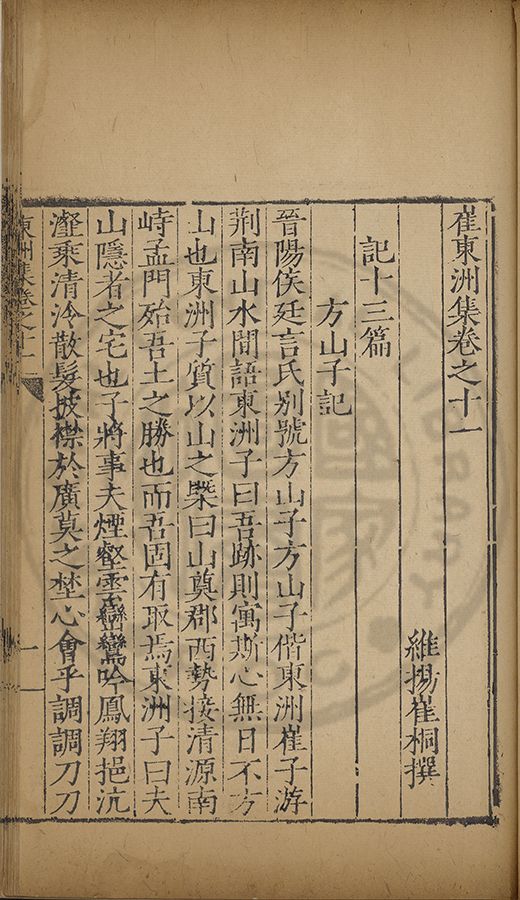 崔東洲集卷之十一
維揚崔桐撰
記十三篇
方山子記
晉陽侯廷言氏别號方山子方山子偕東洲崔子游
荆南山水間語東洲子曰吾跡則寓斯心無日不方
山也東洲子質以山之槩曰山奠郡西勢接清源南
峙孟門殆吾土之勝也而吾固有取焉東洲子曰夫
山隱者之宅也子將事夫煙壑雲巒鸞吟鳳翔挹沆
瀣乘清泠散髮披襟於廣莫之埜心會乎調調刀刀
東洲集卷之十一
一